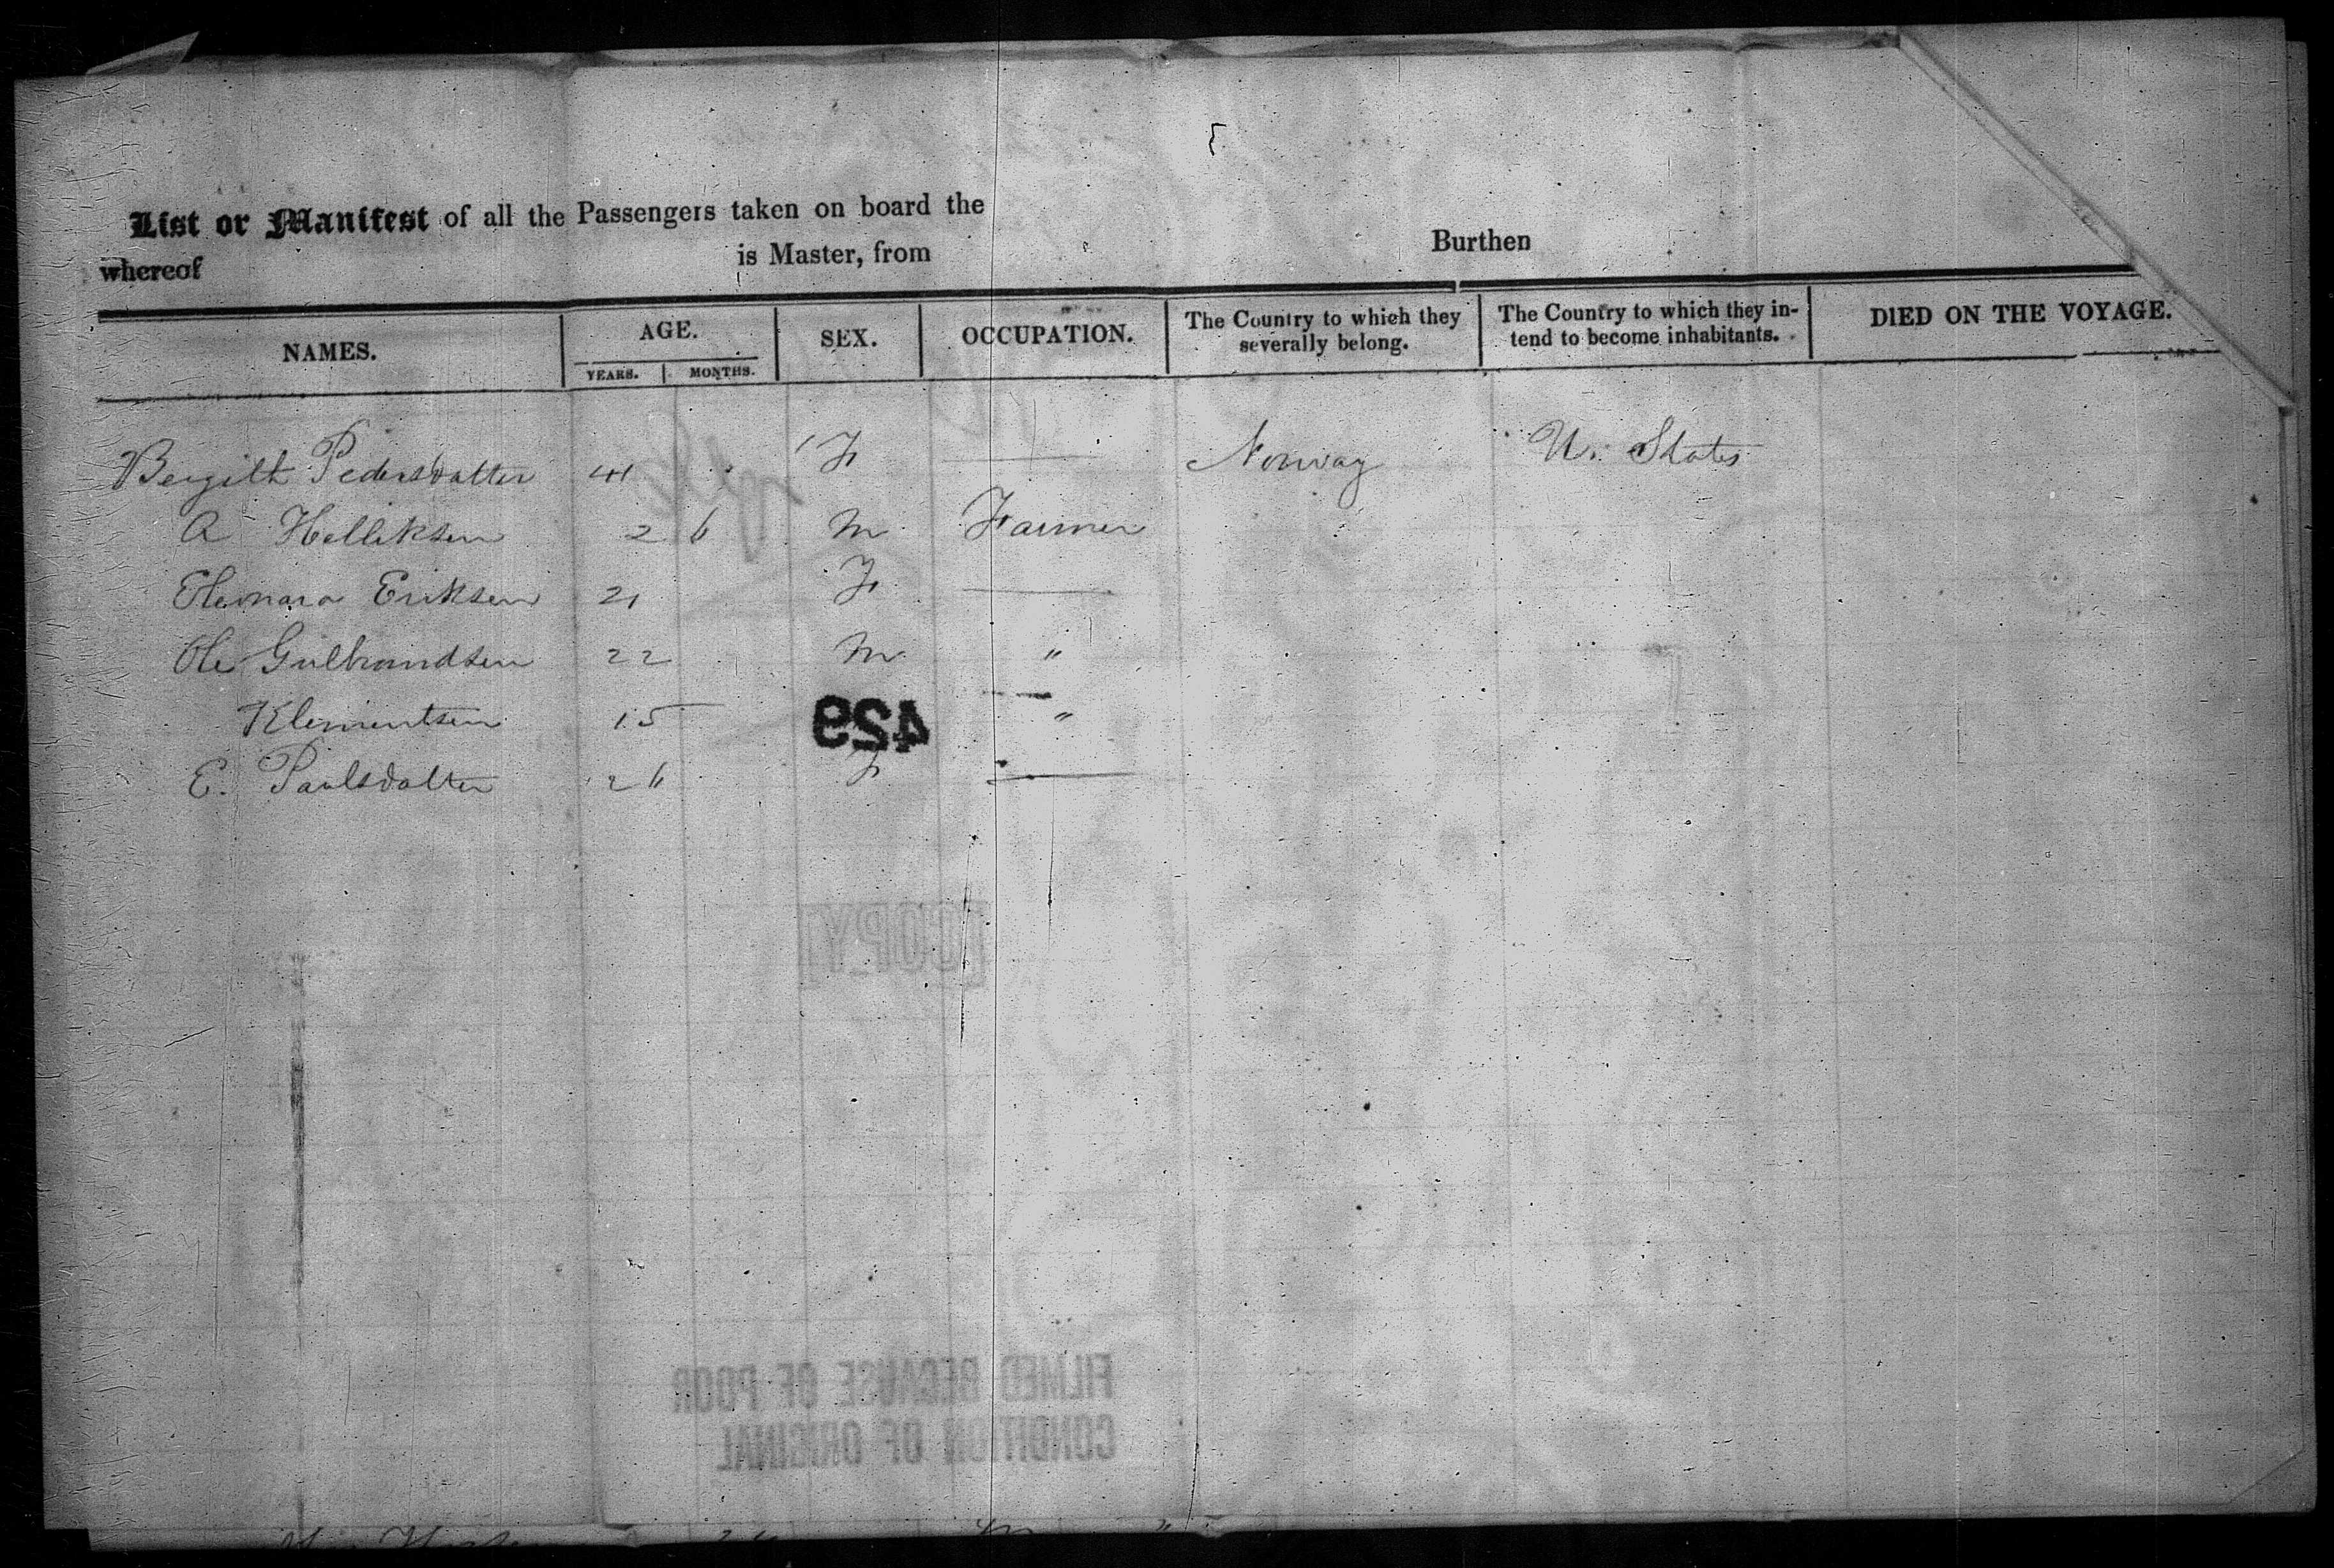 List or Manifest of all the Passengers taken on board the
whereof is Master, from Burthen
NAMES. AGE. SEX. OCCUPATION. The Country to which they severally belong. The Country to which they in- tend to become inhabitants. DIED ON THE VOYAGE.
YEARS. MONTHS.
Bergith Pedersdatter 41 F — Norway U. States
A Helliksen 26 M Farmer
Eleonara Eriksen 21 F —
Ole Gulbrandsen 22 M "
Klementsen 15 "
429
E. Paulsdatter 26 F —
[COPY]
FILMED BECAUSE OF POOR
CONDITION OF ORIGINAL